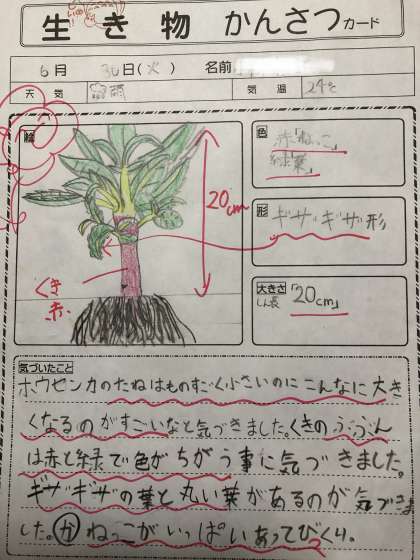 生き物 かんさつカード
6月 30日(火) 名前
天気 雨 気温 24℃
絵
20cm
くき
赤
色
赤「ねっこ」
緑「葉」
形
ギザギザ形
大きさ
しん長
「20cm」
気づいたこと
ホウセンカのたねはものすごく小さいのにこんなに大き
くなるのがすごいなと気づきました。くきのぶぶん
は赤と緑で色がちがう事に気づきました。
ギザギザの葉と丸い葉があるのが気づきま
した。か ねっこがいっぱいあってびっくり。